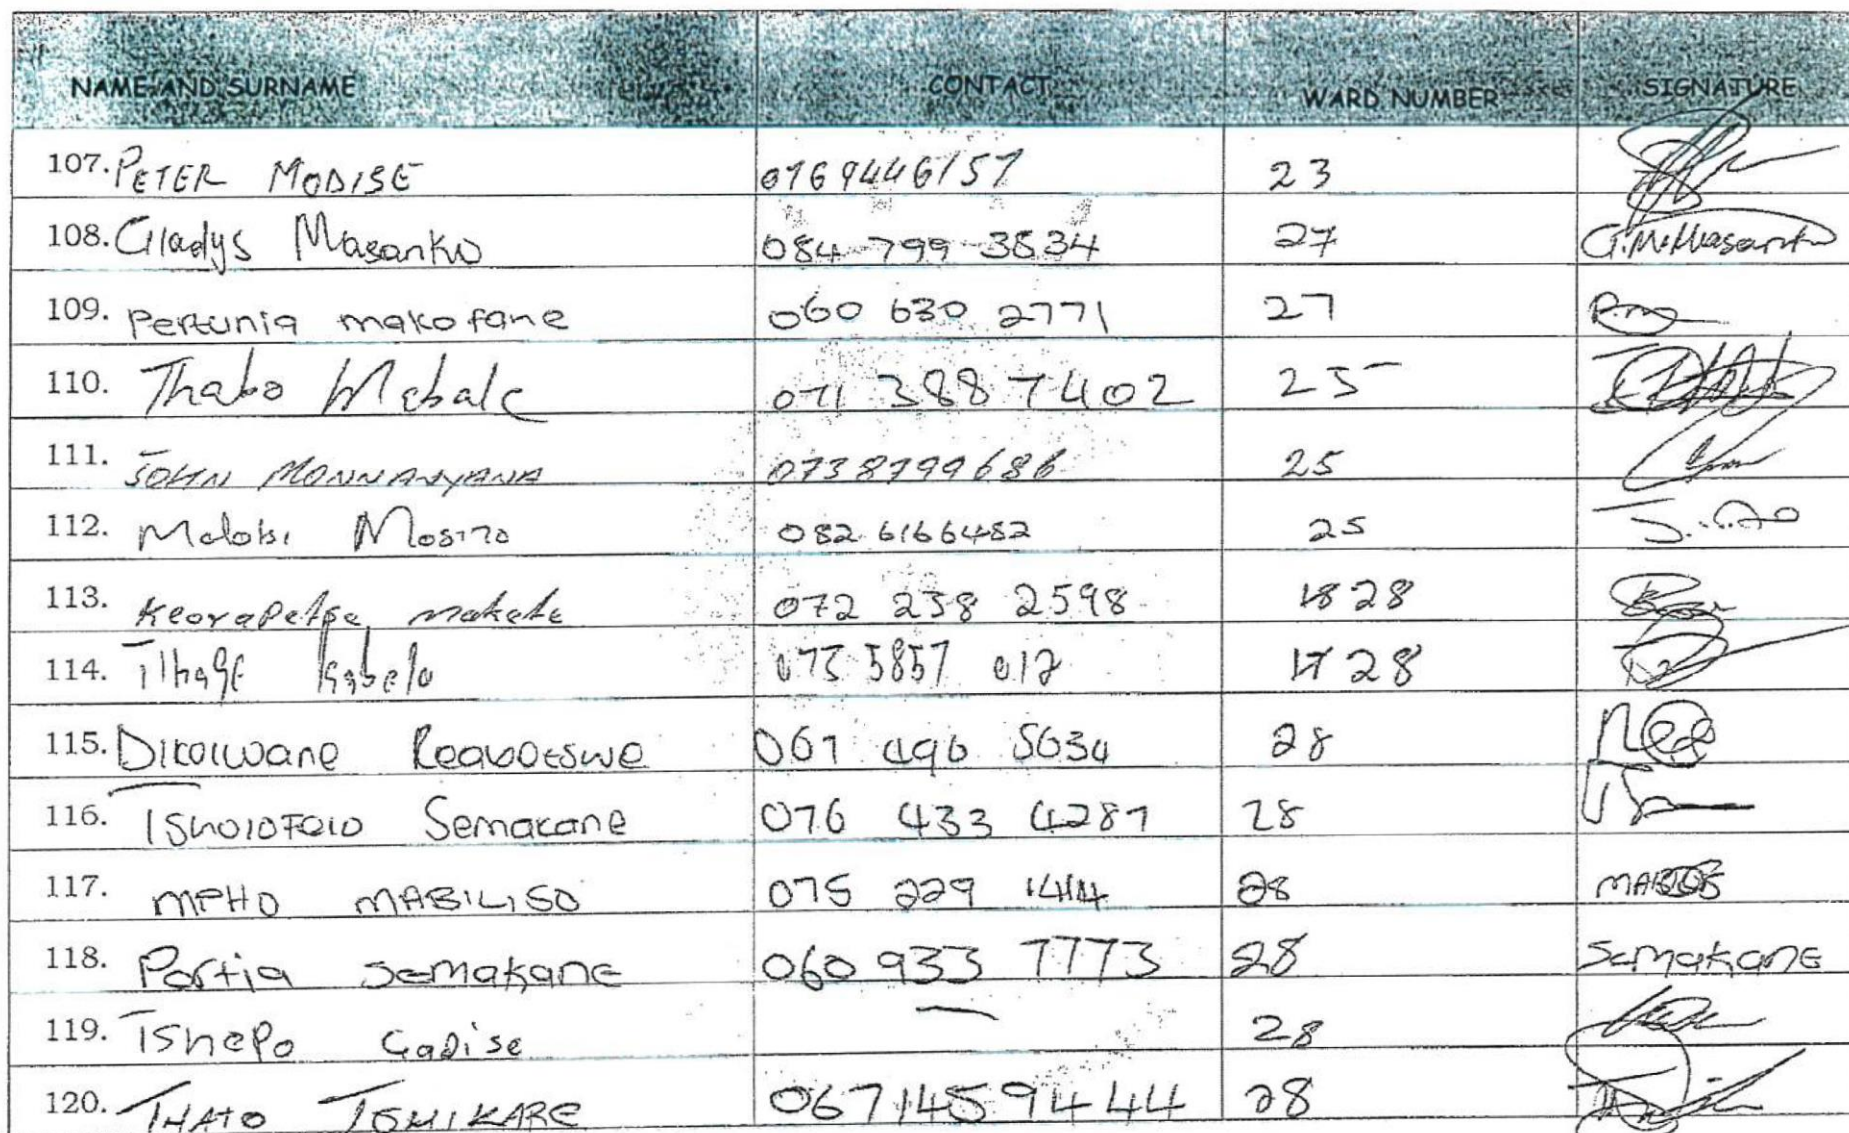 NAME AND SURNAME CONTACT WARD NUMBER SIGNATURE
107. PETER MODISE 0769446157 23
108. Gladys Masanko 084 799 3534 27 G.M. Masanko
109. Pertunia makofane 060 630 2771 27 P.m
110. Thabo Mabale 071 388 7402 25
111. JOHN MONNANYANA 0738799686 25
112. Moloki Mosito 082 6166482 25
113. Keorapetse makete 072 238 2598 18 28
114. Tlhage Kabelo 073 5857 017 17 28
115. Dikolwane Reaboeswe 067 496 5634 28
116. Tsholofelo Semakane 076 433 4287 28
117. MPHO MABILISO 075 229 1414 28
118. Portia Semakane 060 933 7773 28 Semakane
119. Tshepo Gadise — 28
120. THATO TSHIKARE 0671459444 28